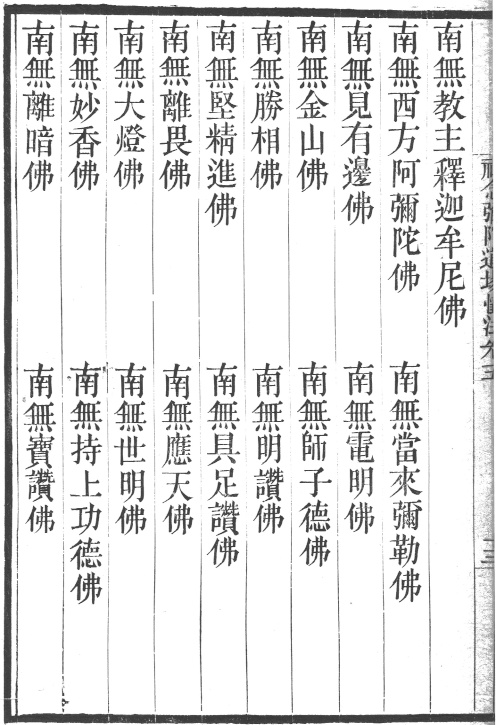 南無教主釋迦牟尼佛
南無西方阿彌陀佛　南無當來彌勒佛
南無見有邊佛　南無電明佛
南無金山佛　南無師子德佛
南無勝相佛　南無明讚佛
南無堅精進佛　南無具足讚佛
南無離畏佛　南無應天佛
南無大燈佛　南無世明佛
南無妙香佛　南無持上功德佛
南無離暗佛　南無寶讚佛